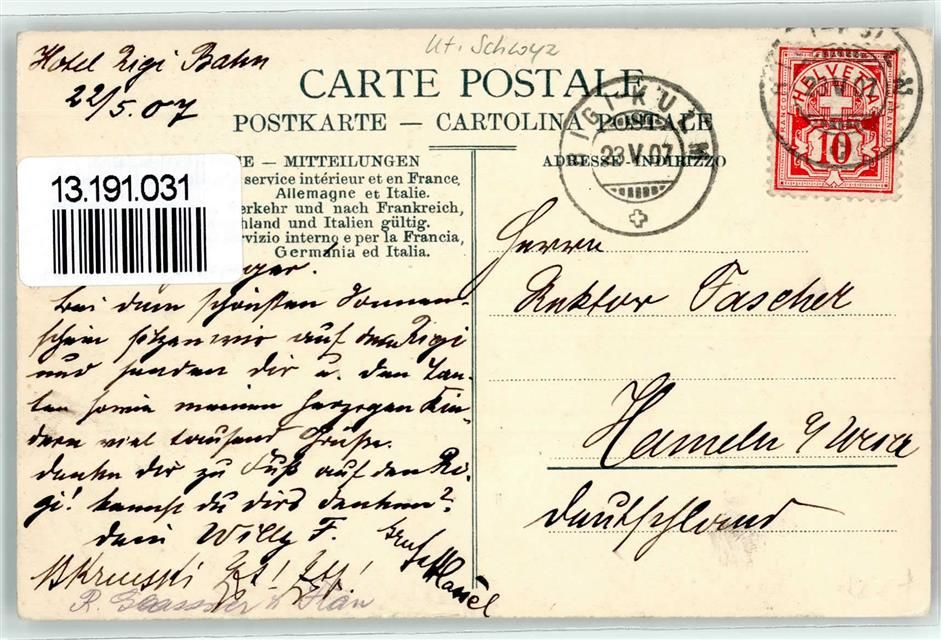 Kt. Schwyz
Hotel Rigi Bahn
22/5.07
CARTE POSTALE
POSTKARTE — CARTOLINA POSTALE
E — MITTEILUNGEN
service intérieur et en France,
Allemagne et Italie.
erkehr und nach Frankreich,
hland und Italien gültig.
rvizio interno e per la Francia,
Germania ed Italia.
13.191.031
ADRESSE-INDIRIZZO
RIGI-KULM
23.V.07
HELVETIA
FRANCO
10
Bei dem schönsten Sonnen-
schein sitzen wir auf dem Rigi
und senden dir u. den Tan-
ten sowie meinen herzigen Kin-
dern viel tausend Grüße.
denke dir zu Fuß auf den Ri-
gi! kannst du dirs denken?
dein Willy F.
Herrn
Rektor Fascher
Hameln a/ Weser
Deutschland